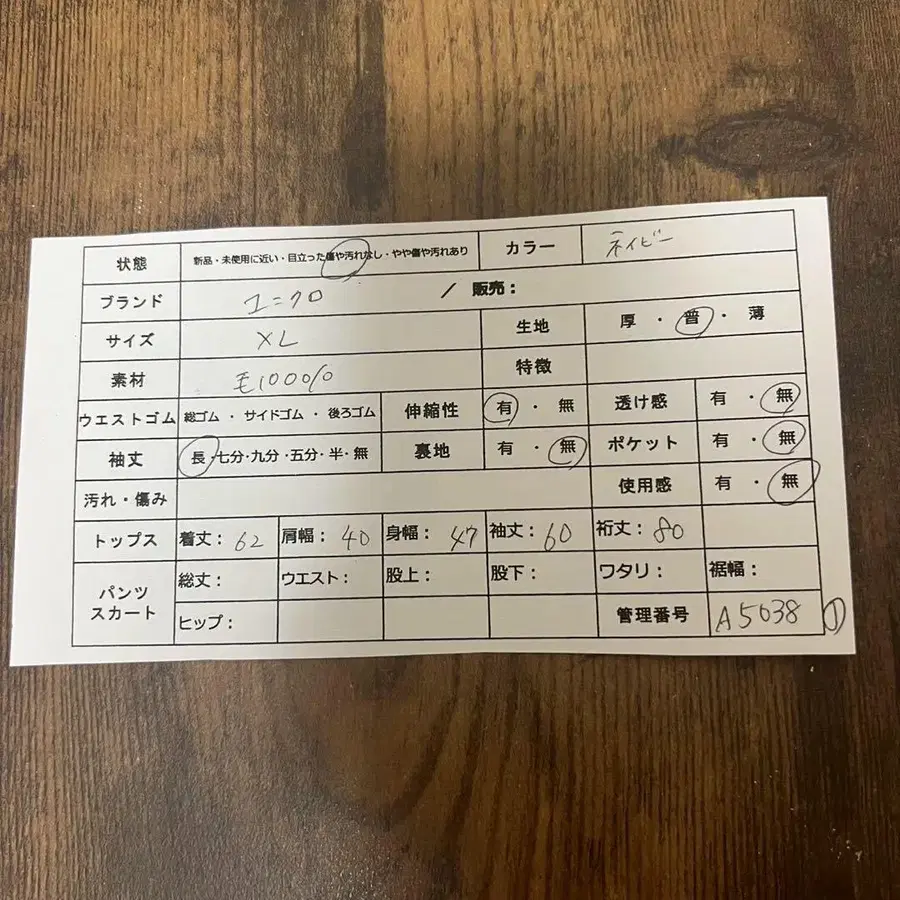 状態 新品・未使用に近い・目立った傷や汚れなし・やや傷や汚れあり カラー ネイビー
ブランド ユニクロ / 販売：
サイズ XL 生地 厚・普・薄
素材 毛100% 特徴
ウエストゴム 総ゴム・サイドゴム・後ろゴム 伸縮性 有・無 透け感 有・無
袖丈 長・七分・九分・五分・半・無 裏地 有・無 ポケット 有・無
汚れ・傷み 使用感 有・無
トップス 着丈：62 肩幅：40 身幅：47 袖丈：60 裄丈：80
パンツ スカート 総丈： ウエスト： 股上： 股下： ワタリ： 裾幅：
ヒップ： 管理番号 A5038 ①